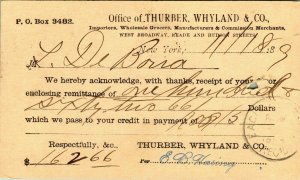 P. O. Box 3482.
Office of THURBER, WHYLAND & CO.,
Importers, Wholesale Grocers, Manufacturers & Commission Merchants,
WEST BROADWAY, READE AND HUDSON STREETS
New York, 11/18 189
L. De Borra
We hereby acknowledge, with thanks, receipt of your
enclosing remittance of one hundred &
sixty two 66/ Dollars
which we pass to your credit in payment of
Respectfully, &c.,
THURBER, WHYLAND & CO.
$ 162.66
Per